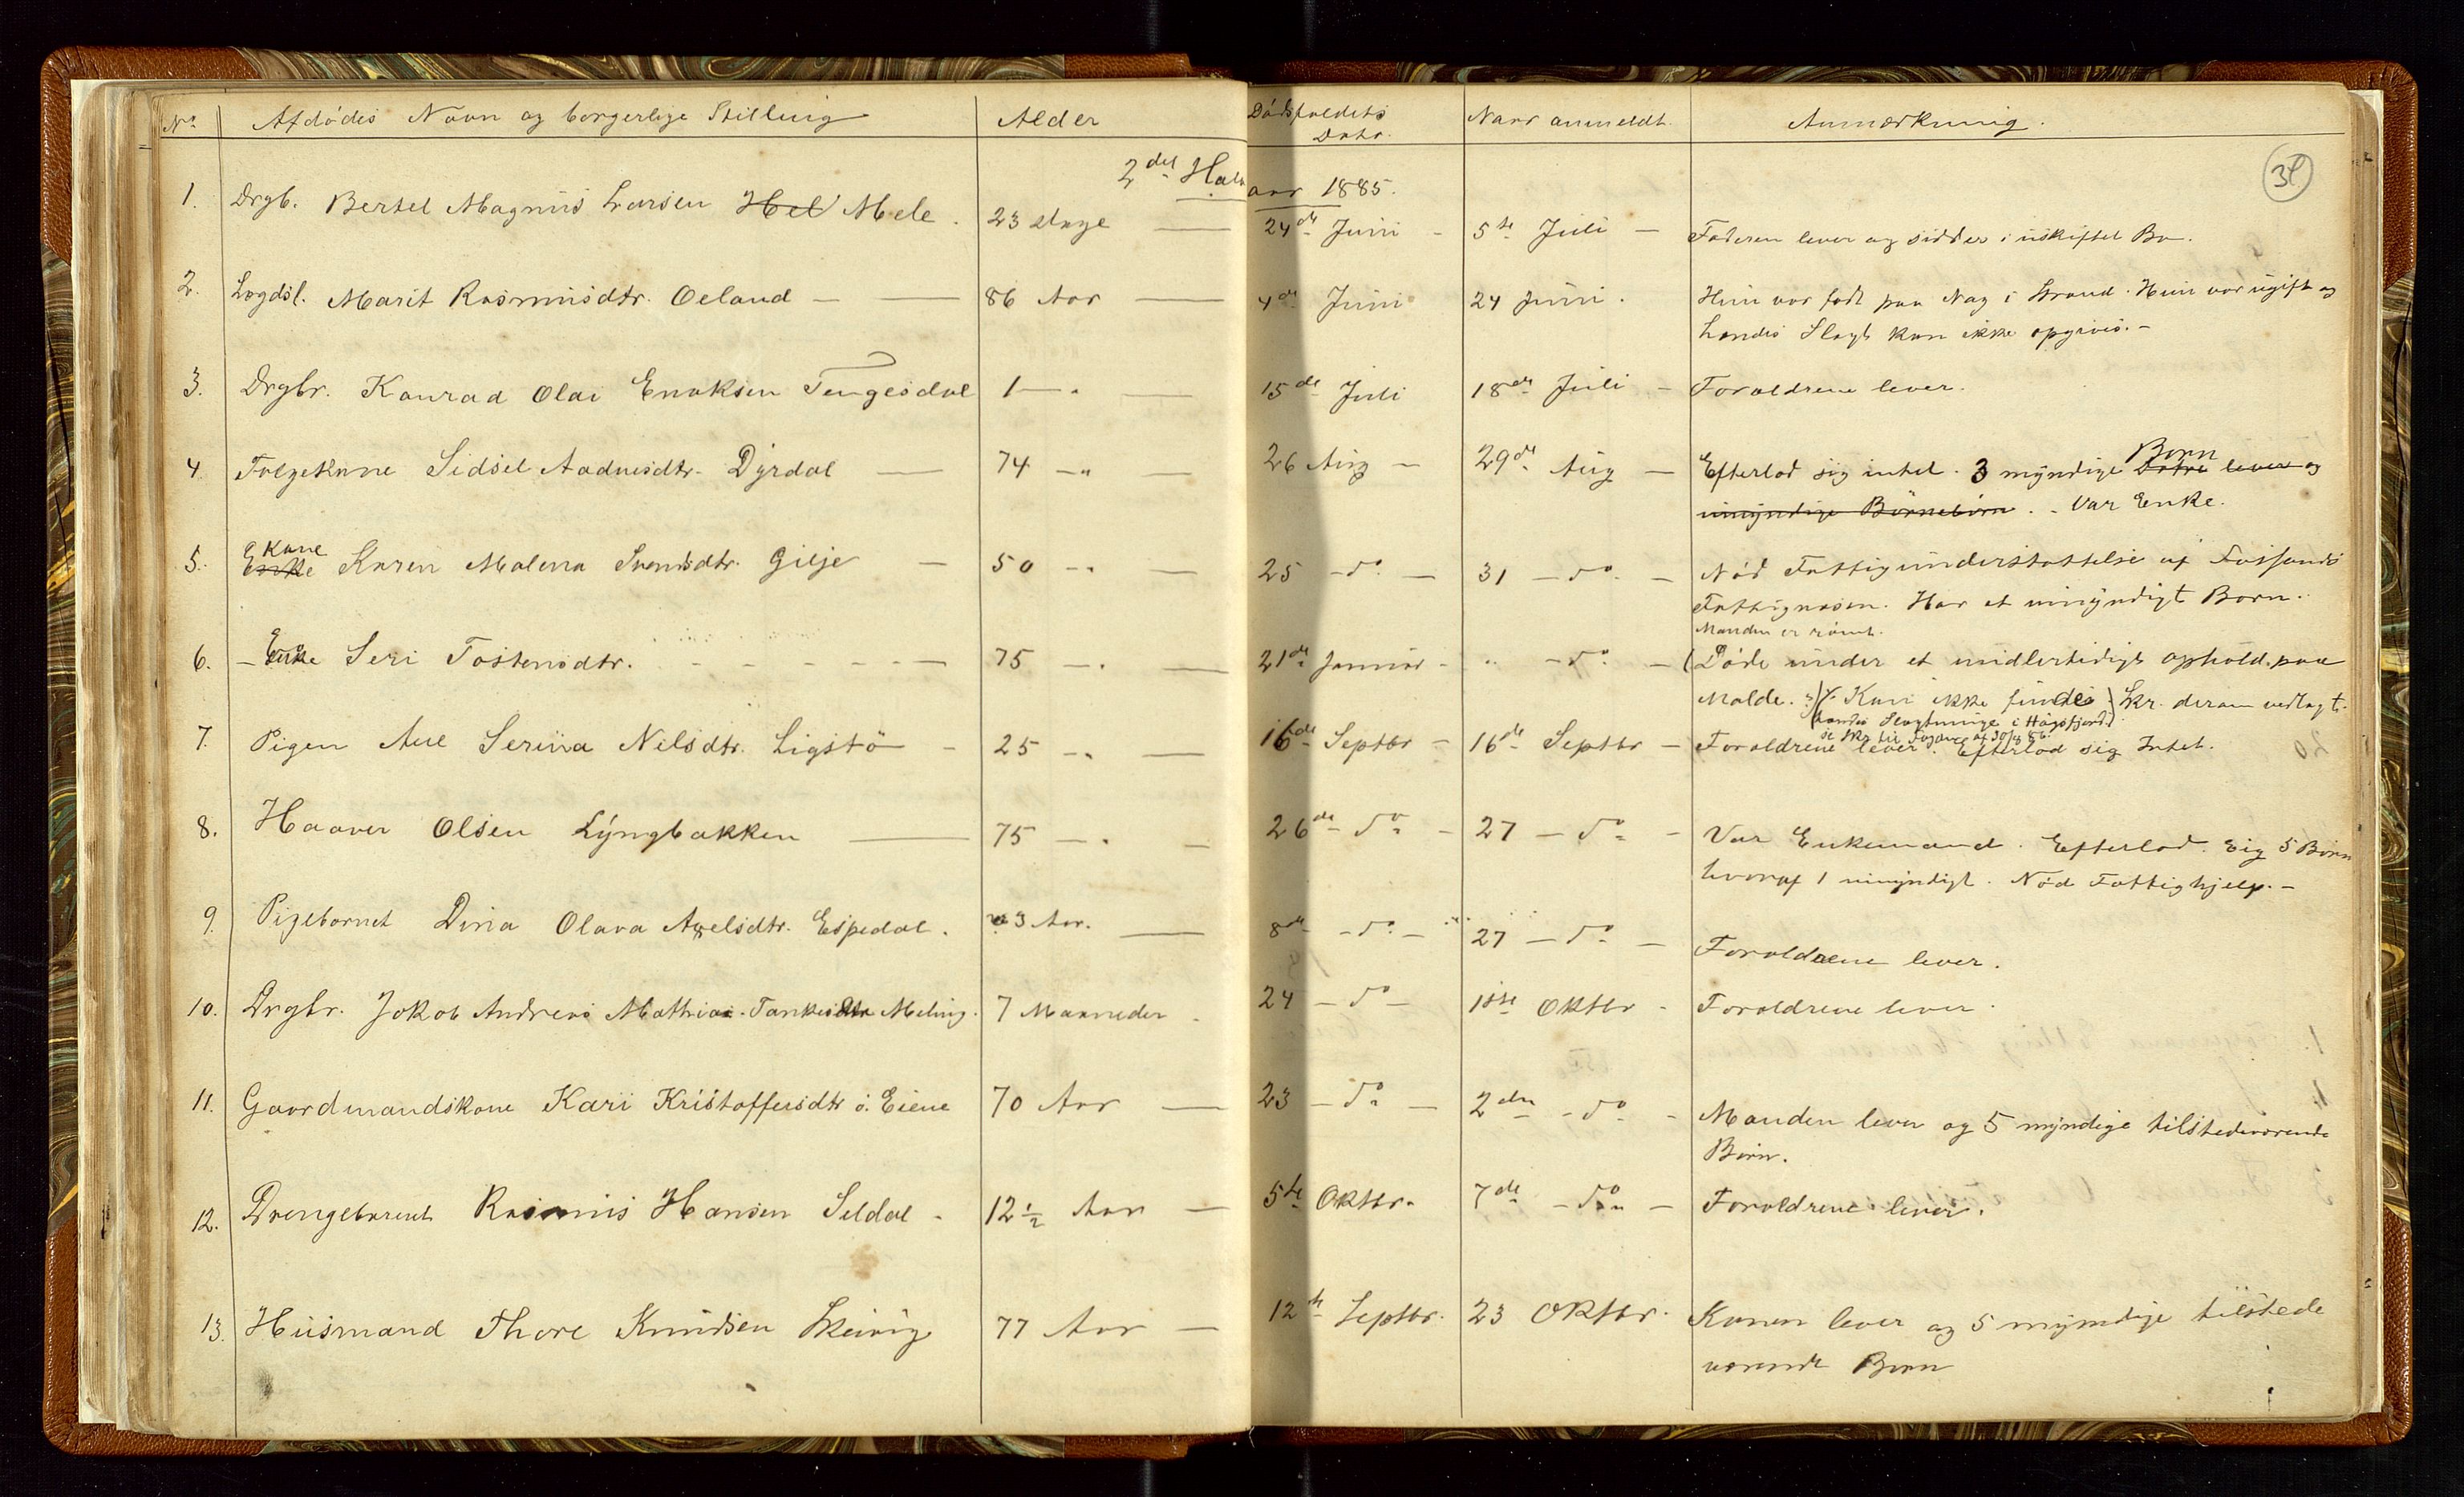 No. Afdødes Navn og borgerlige Stilling Alder Dødsfaldets Naar anmeldt. Anmærkning.
Dato.
34
2det Halvaar 1885.
1. Drgb. Bertel Magnus Larsen Hel Mele. 23 Dage — 24de Juni - 5te Juli - Faderen lever og sidder i uskiftet Bo.
2. Lægdsl. Marit Rasmusdtr. Oeland — — 86 Aar — 4de Juni 24 Juni. Hun var født paa Nag i Strand. Hun var ugift og
hendes Slægt kan ikke opgives. -
3. Drgbr. Konrad Olai Enoksen Tengesdal 1 — " — 15de Juli 18de Juli - Forældrene lever.
4. Følgekone Sidsel Aadnesdtr. Dyrdal — 74 — " — 26 Aug - 29de Aug - Efterlod sig intet. 3 myndige Døtre Børn lever og
umyndige Børnebørn. - Var Enke.
5. Enke Kone Karen Malena Svendsdtr. Gilje — 50 — " — 25 - do. - 31 - do. - Nød Fattigunderstøttelse af Fossands
Fattigvæsen. Har et umyndigt Barn.
Manden er rømt.
6. - Enke Seri Tostensdtr. - - - - - 75 — " — 21de Januar - " - do - (Døde under et midlertidigt ophold paa
Molde. Kan ikke findes Skr. derom vedlagt.
(hendes Slægtninge i Høgsfjord)
se Skr. til Fogden af
7. Pigen Ane Serina Nilsdtr. Ligstø - 25 — " — 16de Septbr - 16de Septbr - Forældrene lever. Efterlod sig Intet.
8. Haaver Olsen Lyngbakken — 75 — " — 26de - do - 27 - do - Var Enkemand. Efterlod sig 5 Børn
hvoraf 1 umyndigt. Nød Fattighjelp. -
9. Pigebarnet Dina Olava Axelsdtr. Espedal. 3 Aar. — 8de - do - 27 - do - Forældrene lever.
10. Drgbr. Jakob Andreas Mathias Tankes Meling. 7 Maaneder - 24 - do - 1ste Oktbr - Forældrene lever.
11. Gaardmandskone Kari Kristoffersdtr ø. Eiene 70 Aar — 23 - do - 2den - do - Manden lever og 5 myndige tilstedeværende
Børn.
12. Drengebarnet Rasmus Hansen Seldal - 12½ Aar — 5te Oktbr. 7de - do - Forældrene lever.
13. Husmand Thore Knudsen Skeivig 77 Aar — 12te Septbr. 23 Oktbr. Konen lever og 5 myndige tilstede
værende Børn